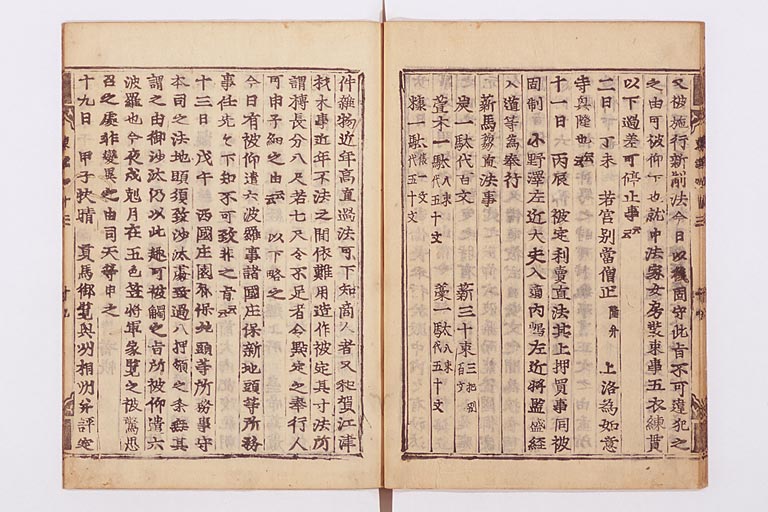 又被施行新制法今日以後固守此旨不可違犯之
之由可被仰下也就中法家女房裝束事五衣練貫
以下過差可停止事云云
二日丁未 若宮別當僧正隆弁 上洛為如意
寺興隆也云云
十一日 丙辰 被定利賣直法其上押買事同被
固制 小野澤左近大夫入道内嶋左近將監盛經
入道等為奉行
薪馬芻直法事
炭一駄代百文 薪三十束三把別百文
萱木一駄八束代五十文 藁一駄八束代五十文
糠一駄一文代五十文
件雜物近年高直過法可下知商人者又和賀江津
材木事近年不法之間依難用造作被定其寸法所
謂榑長分八尺若七尺令不足者令點定之奉行人
可申子細之由云云 以下略之
今日有被仰遣六波羅事諸國庄保新地頭等所務
事任先々下知不可致非之旨云云
十三日 戊午 西國庄園郷保地頭等所務事守
本司之法地頭須致沙汰處致過分押領之条無其
謂之由御沙汰仍以此趣可被觸之旨所被仰遣六
波羅也今夜戌剋月在五色笠將軍家覽之被驚思
召之處非變異之由司天等申之
十九日 甲子快晴 貢馬御覽奥州相州并評定